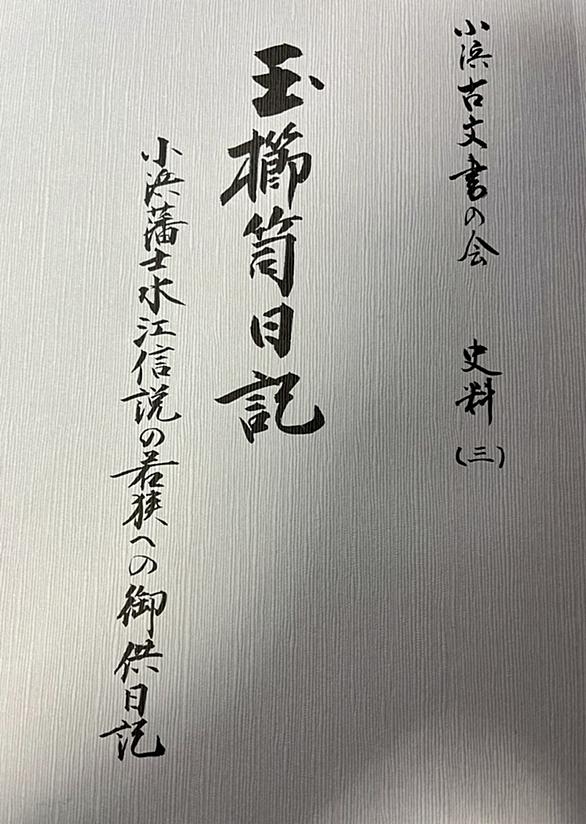 小浜古文書の会　史料(三)
玉櫛笥日記
小浜藩士水江信説の若狭への御供日記